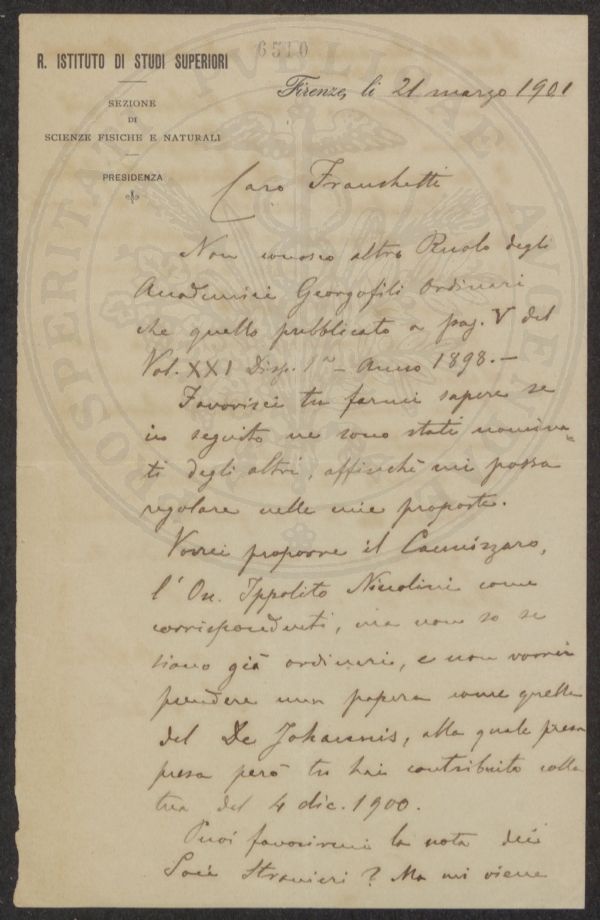 6510
R. ISTITUTO DI STUDI SUPERIORI
Firenze, li 21 marzo 1901
SEZIONE
DI
SCIENZE FISICHE E NATURALI
PRESIDENZA
Caro Franchetti
Non conosco altro Ruolo degli
Accademici Georgofili Ordinari
che quello pubblicato a pag. V del
Vol. XXI Disp. 1ª - Anno 1898. -
Favorisci tu farmi sapere se
in seguito ne sono stati nomina=
ti degli altri, affinchè mi possa
regolare nelle mie proposte.
Vorrei proporre il Cannizzaro,
l'On. Ippolito Niccolini come
corrispondenti, ma non so se
siano già ordinari, e non vorrei
prendere una papera come quella
del De Johannis, alla quale
presa però tu hai contribuito colla
tua del 4 dic. 1900.
Puoi favorirmi la nota dei
Soci Stranieri? Ma mi viene